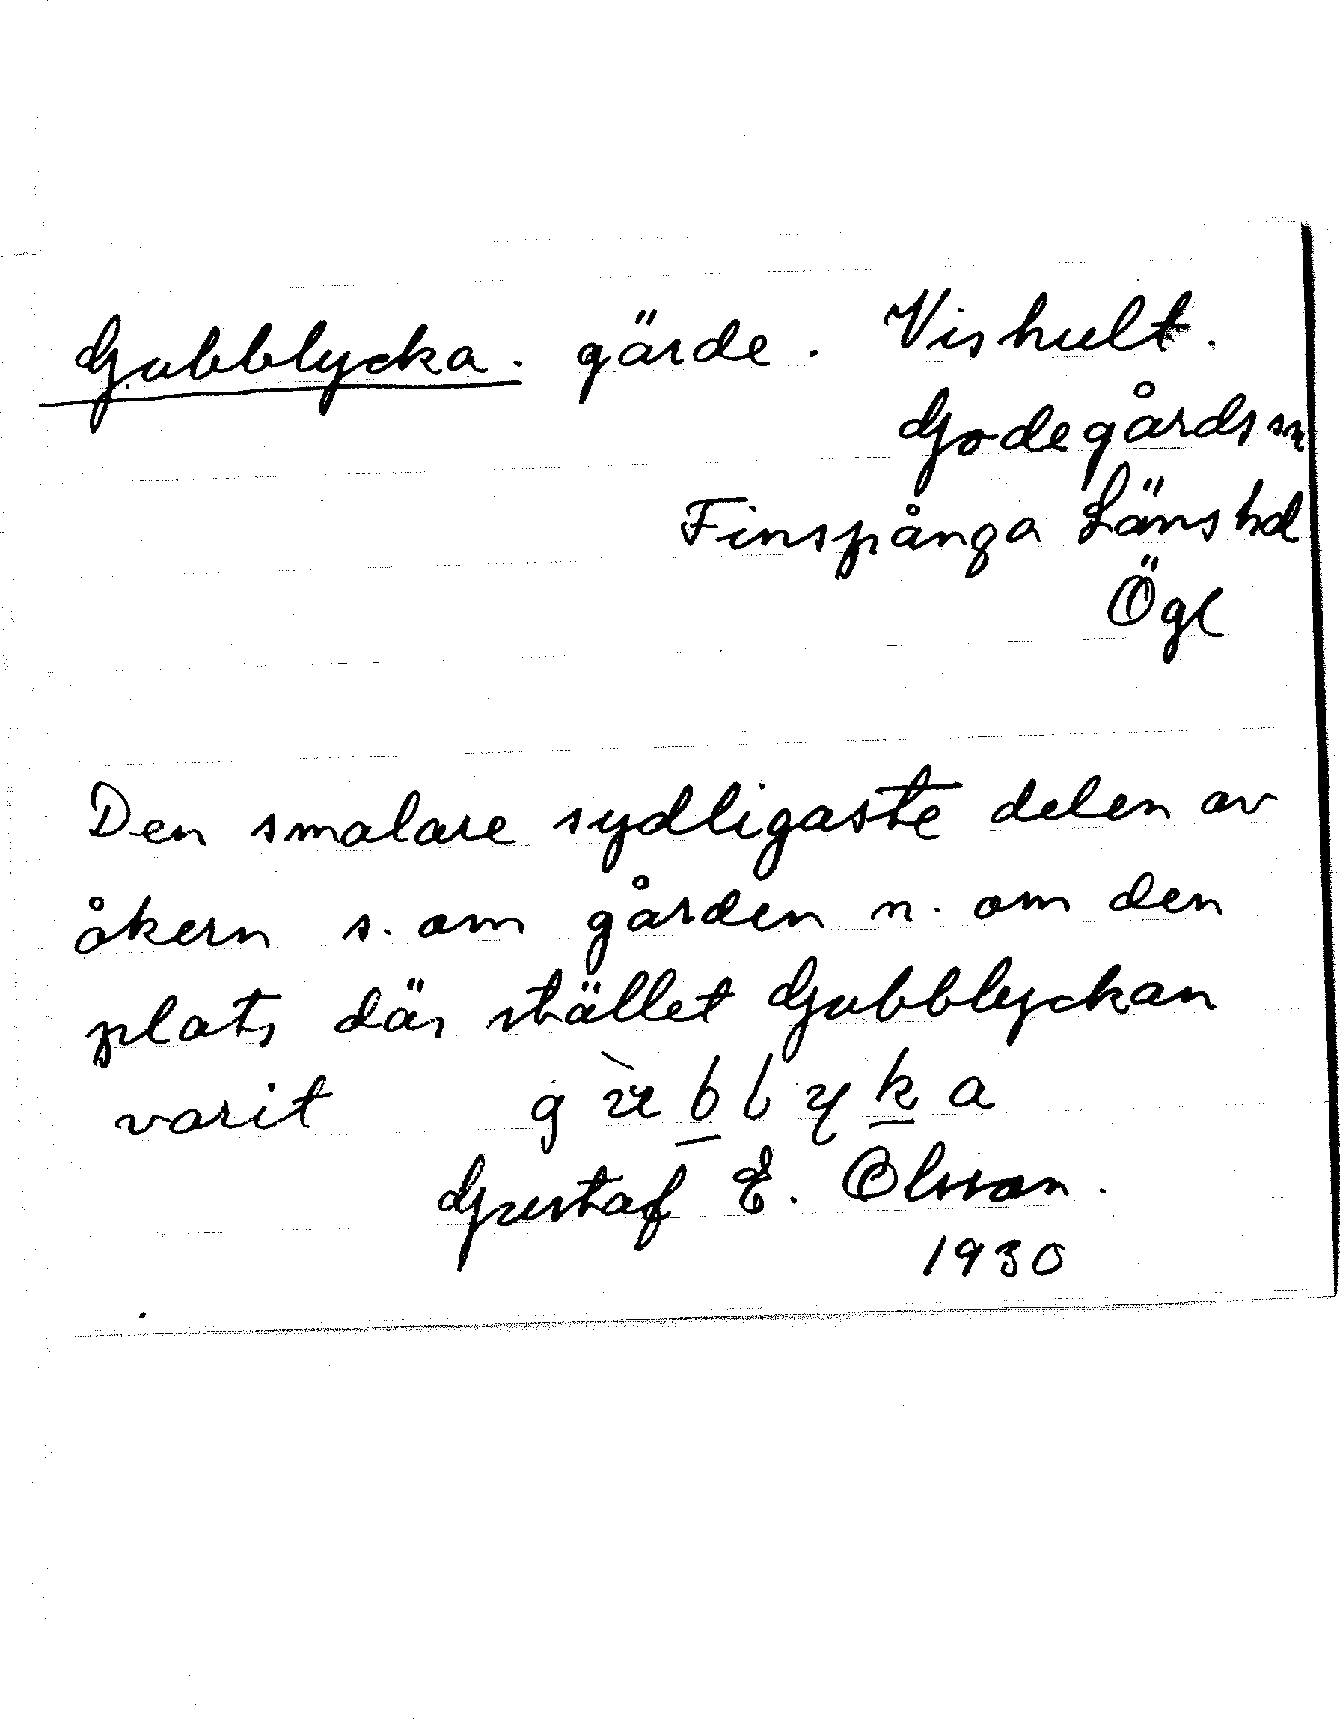 Gubblycka. gärde. Vishult.
Godegårds sn
Finspånga Läns hd
Ögl
Den smalare sydligaste delen av
åkern s. om gården n. om den
plats där stället Gubblyckan
varit gùblyka
Gustaf E. Olsson.
1930